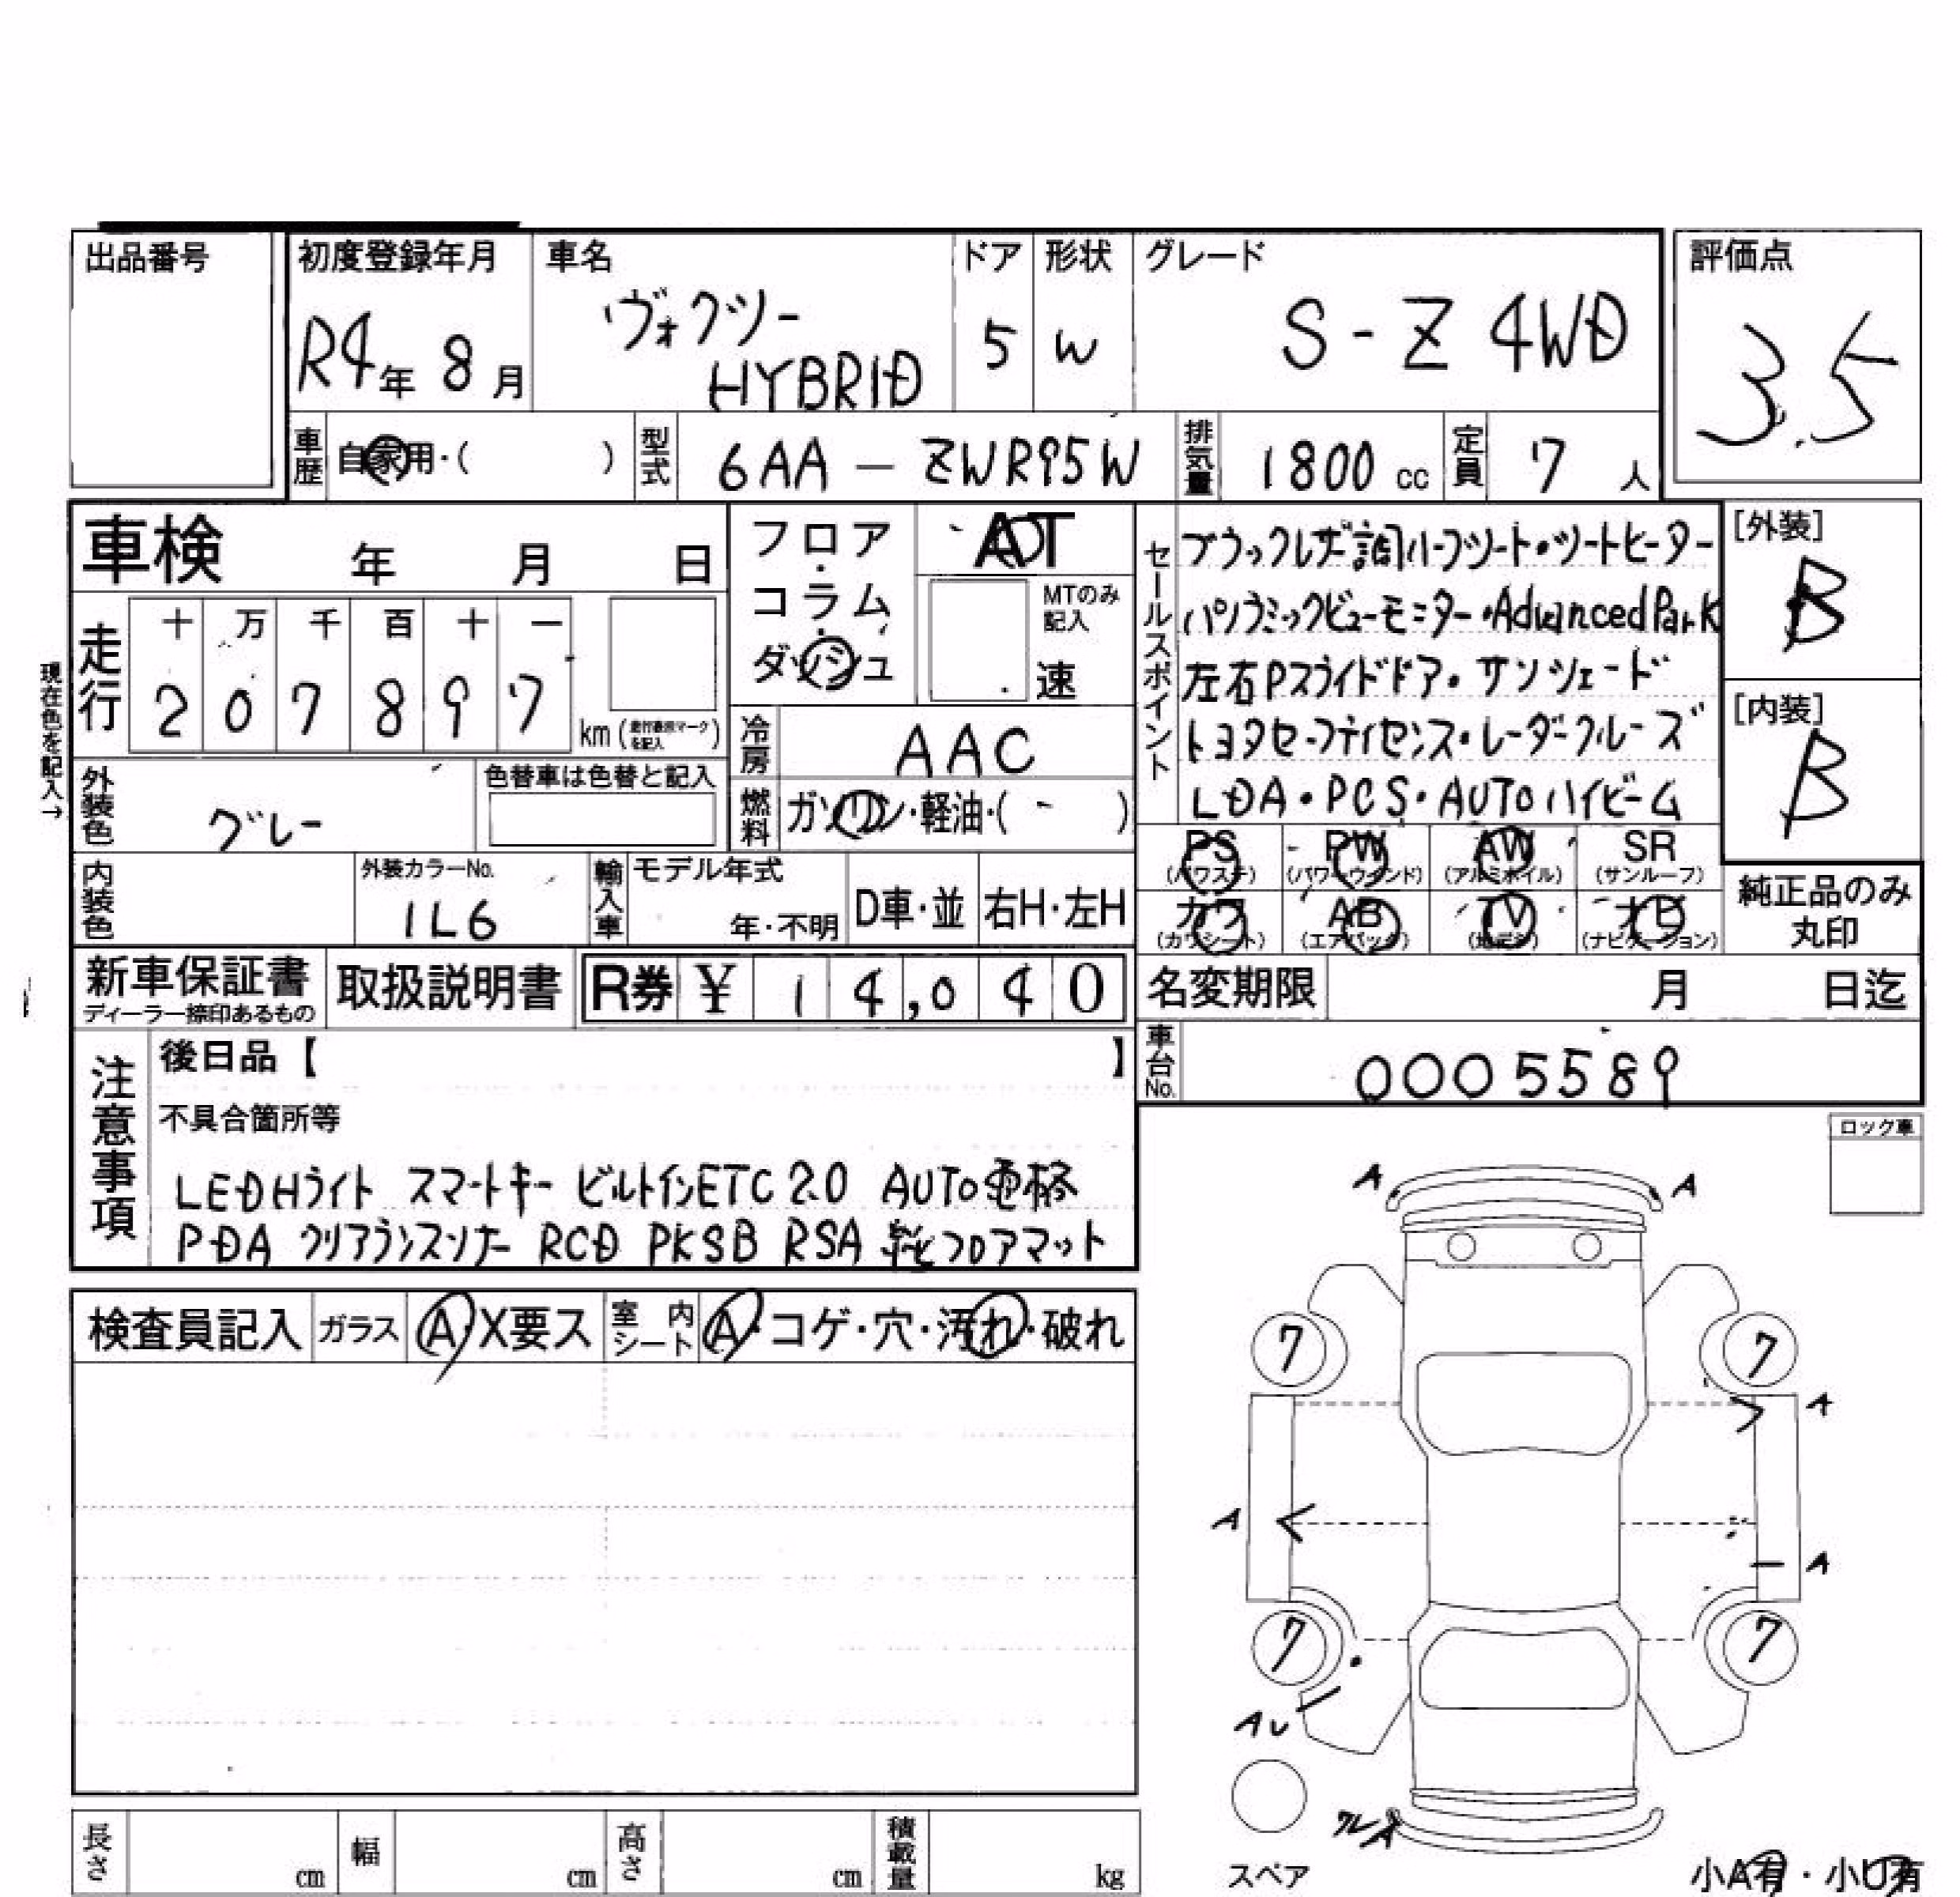 出品番号
初度登録年月 車名 ドア 形状 グレード 評価点
R4年 8月 ヴォクシー HYBRID 5 W S-Z 4WD 3.5
車歴 自家用・( ) 型式 6AA－ZWR95W 排気量 1800 cc 定員 7 人
車検 年 月 日
フロア・コラム・ダッシュ AT
MTのみ記入 速
走行 十 万 千 百 十 一
2 0 7 8 9 7 km (走行距離マークを記入)
現在色を記入→
外装色 グレー 色替車は色替と記入
冷房 AAC
燃料 ガソリン・軽油・( )
内装色 外装カラーNo. 1L6 輸入車 モデル年式 年・不明 D車・並 右H・左H
新車保証書 ディーラー捺印あるもの 取扱説明書 R券 ¥ 14,040
セールスポイント
ブラックレザー調ハーフシート・シートヒーター
パノラミックビューモニター・Advanced Park
左右Pスライドドア・サンシェード
トヨタセーフティセンス・レーダークルーズ
LDA・PCS・AUTOハイビーム
[外装] B
[内装] B
PS (パワステ) PW (パワーウインド) AW (アルミホイル) SR (サンルーフ)
カワ (カワシート) AB (エアバッグ) TV (地デジ) ナビ (ナビゲーション)
純正品のみ丸印
名変期限 月 日迄
車台No. 0005589
注意事項
後日品【 】
不具合箇所等
LEDHライト スマートキー ビルトインETC2.0 AUTO電格
PDA クリアランスソナー RCD PKSB RSA 純正フロアマット
検査員記入 ガラス A・X要ス 室内シート A・コゲ・穴・汚れ・破れ
ロック車
A A
7 7
A
A
A
7 7
AU
スペア
小A有・小U有
長さ cm 幅 cm 高さ cm 積載量 kg